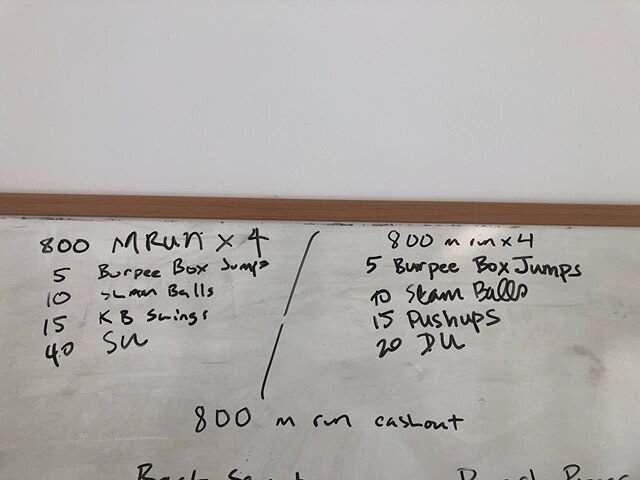 800 M RUN x 4
5 Burpee Box Jumps
10 Slam Balls
15 KB Swings
40 SU
800 m run x 4
5 Burpee Box Jumps
10 Slam Balls
15 Pushups
20 DU
800 m run cashout